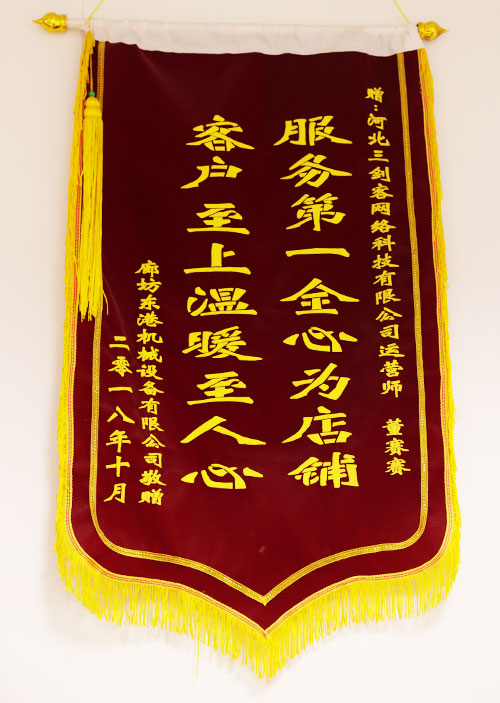 赠：河北三剑客网络科技有限公司运营师 董赛赛
服务第一全心为店铺
客户至上温暖至人心
廊坊东港机械设备有限公司敬赠
二零一八年十月